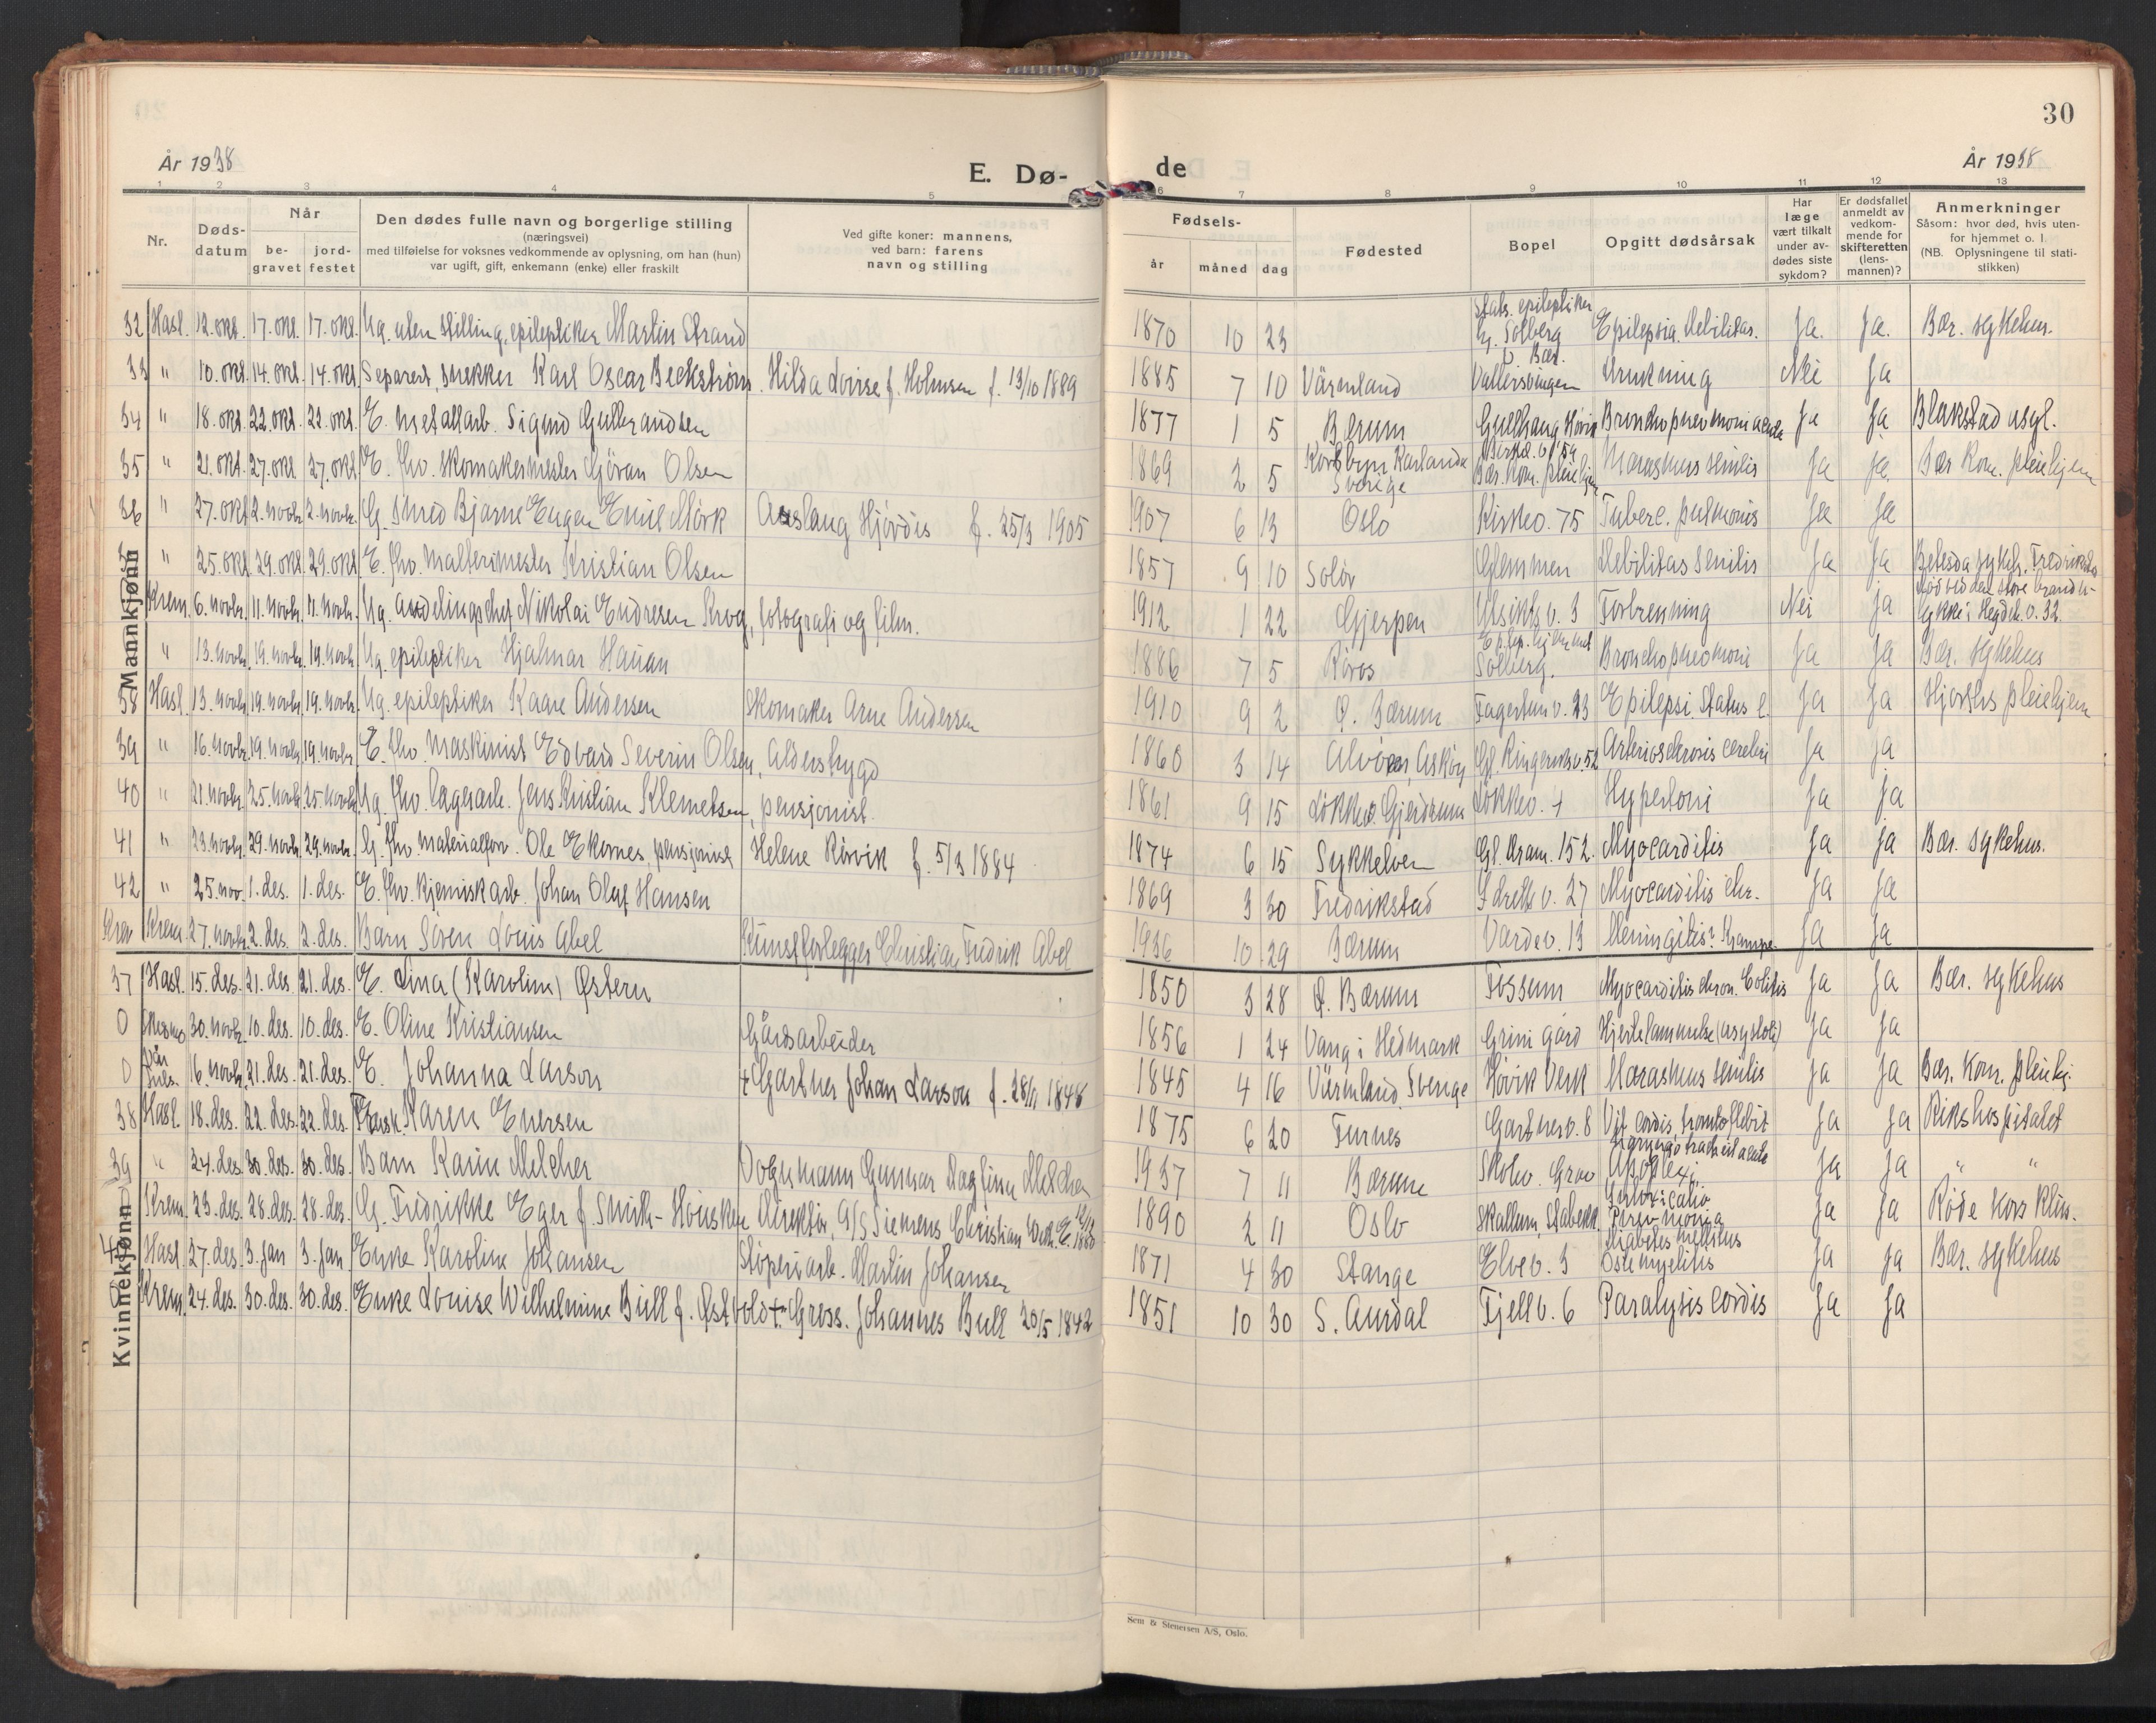 30
År 1938
E. Dø-
de
År 1938
1 2 3 4 5 6 7 8 9 10 11 12 13
Nr.
Døds-
datum
Når
be-
gravet
jord-
festet
Den dødes fulle navn og borgerlige stilling
(næringsvei)
med tilføielse for voksnes vedkommende av oplysning, om han (hun)
var ugift, gift, enkemann (enke) eller fraskilt
Ved gifte koner: mannens,
ved barn: farens
navn og stilling
Fødsels-
år
måned
dag
Fødested
Bopel
Opgitt dødsårsak
Har
læge
vært tilkalt
under av-
dødes siste
sykdom?
Er dødsfallet
anmeldt av
vedkom-
mende for
skifteretten
(lens-
mannen)?
Anmerkninger
Såsom: hvor død, hvis uten-
for hjemmet o. l.
(NB. Oplysningene til stati-
stikken)
Mannkjønn
32 Hasl. 12. okt. 17. okt. 17. okt. Ug. uten stilling, epileptiker Martin Strand 1870 10 23 Stats. epileptiker hj. Solberg v. Bær. Epilepsia. Debilitas. Ja. Ja. Bær. sykehus.
33 " 10. okt. 14. okt. 14. okt. Separert, snekker Karl Oscar Beckstrøm. Hilda Lovise f. Holmsen f. 13/10 1889 1885 7 10 Värmland Vallersvingen Drukning Nei Ja
34 " 18. okt. 22. okt. 22. okt. E. metallarb. Sigurd Gulbrandsen 1877 1 5 Bærum Gullhaug Høvik Bronchopneumoni acuta Ja Ja Blakstad asyl.
35 " 21. okt. 27. okt. 27. okt. E. fhv. skomakermester Gjöran Olsen 1869 2 5 Sverige Bær. kom. pleiehjem Marasmus senilis Ja Ja Bær. kom. pleiehjem
36 " 27. okt. 2. novbr. 2. novbr. G. Smed Bjarne Eugen Emil Mörk Aasslaug Hjördis f. 25/3 1905 1907 6 13 Oslo Kirkev. 75 Tuberc. pulmonis Ja Ja
" 25. okt. 29. okt. 29. okt. E. fhv. Kristian Olsen 1857 9 10 Solör Glemmen Debilitas senilis Ja Ja Betesda sykeh. Fredrikstad
Krem. 6. novbr. 11. novbr. 11. novbr. Ug. avdelingschef Nikolai Endresen Krog, fotografi og film. 1912 1 22 Gjerpen Utsiktsv. 3 Forbrenning Nei Ja Död ved den store brannulykke i Hegdeh. v. 32.
" 13. novbr. 19. novbr. 19. novbr. Ug. epileptiker Hjalmar Hauan 1886 7 5 Röros Solberg. Bronchopneumoni Ja Ja Bær. sykehus
38 Hasl. 13. novbr. 19. novbr. 19. novbr. Ug. epileptiker Kaare Andersen Skomaker Arne Andersen 1910 9 2 Ø. Bærum Fagertun v. 23 Epilepsi. Status e. Ja Ja pleiehjem
39 " 16. novbr. 19. novbr. 19. novbr. E. fhv. maskinist Edvard Severin Olsen, Alderstrygd 1860 3 14 Alvöen, Asköy Gl. Ringeriksv. 52 Arteriosclerosis cerebri Ja Ja
40 " 21. novbr. 25. novbr. 25. novbr. Ug. fhv. lagerarb. Jens Kristian Klemetsen, pensjonist. 1861 9 15 Gjerdrum Løkkev. 4 Hypertoni Ja Ja
41 " 23. novbr. 29. novbr. 29. novbr. G. fhv. materialforv. Ole Ekornes pensjonist Helene Rörvik f. 5/3 1884 1874 6 15 Sykkelven Gl. Dram. 152. Myocarditis Ja Ja Bær. sykehus.
42 " 25. nov. 1. des. 1. des. E. fhv. kjemisk arb. Johan Olaf Hansen 1869 3 30 Fredrikstad Idrettv. 27 Myocarditis chr. Ja Ja
Krem 27. novbr. 2. des. 2. des. Barn Sören Louis Abel Kunstforlegger Christian Fredrik Abel 1936 10 29 Bærum Vardev. 13 Meningitis? Krampe. Ja Ja
Kvinnekjønn
37 Hasl. 15. des. 21. des. 21. des. E. Lina (Karoline) Østern 1850 3 28 Ø. Bærum Fossum Myocarditis chron. Colitis Ja Ja Bær. sykehus
0 30. novbr. 10. des. 10. des. E. Oline Kristiansen Gårdsarbeider 1856 1 24 Vang i Hedmark Grini gård Hjertelammelse (asystoli) Ja Ja
0 16. novbr. 21. des. 21. des. E. Johanna Larson + Gartner Johan Larson f. 1848 1845 4 16 Värmland Sverige Høvik Verk Marasmus senilis Ja Ja Bær. kom. pleiehj.
38 Hasl. 18. des. 22. des. 22. des. Karen Eversen 1875 6 20 Furnes Gartnerv. 8 Vit. cordis, tromboflebit Ja Ja Rikshospitalet
39 " 24. des. 30. des. 30. des. Barn Karin Melcher Vognmann Gunnar Melcher 1937 7 11 Bærum Skolev. Grav Ja Ja " "
Krem. 23. des. 28. des. 28. des. G. Fredrikke Eger f. Smith-Housken Direktör, A/S Siemens Christian Wilh. E. 1890 2 11 Oslo Skallum, Stabekk. Pneumonia Ja Ja Røde Kors Klin.
Hasl. 27. des. 3. jan 3. jan. Enke Karoline Johansen Støperiarb. Martin Johansen 1871 4 30 Stange Elvev. 3 Diabetes mellitus Ostemyelitis Ja Ja Bær. sykehus
Krem. 24. des. 30. des. 30. des. Enke Louise Wilhelmine Bull f. Østvold + Gross. Johannes Bull 20/5 1842 1851 10 30 S. Aurdal Fjellv. 6 Paralysis cordis Ja Ja
Sem & Stenersen A/S, Oslo.